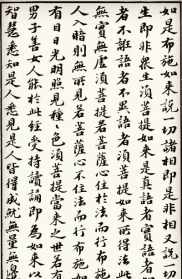 如是布施如來說一切諸相即是非相又說一切
生即非眾生須菩提如來是真語者實語者
者不誑語者不異語者須菩提如來所得法此
無實無虛須菩提若菩薩心住於法而行布施
人入暗則無所見若菩薩心不住法而行布施
有目日光明照見種種色須菩提當來之世若有
男子善女人能於此經受持讀誦即為如來以
智慧悉知是人悉見是人皆得成就無量無邊